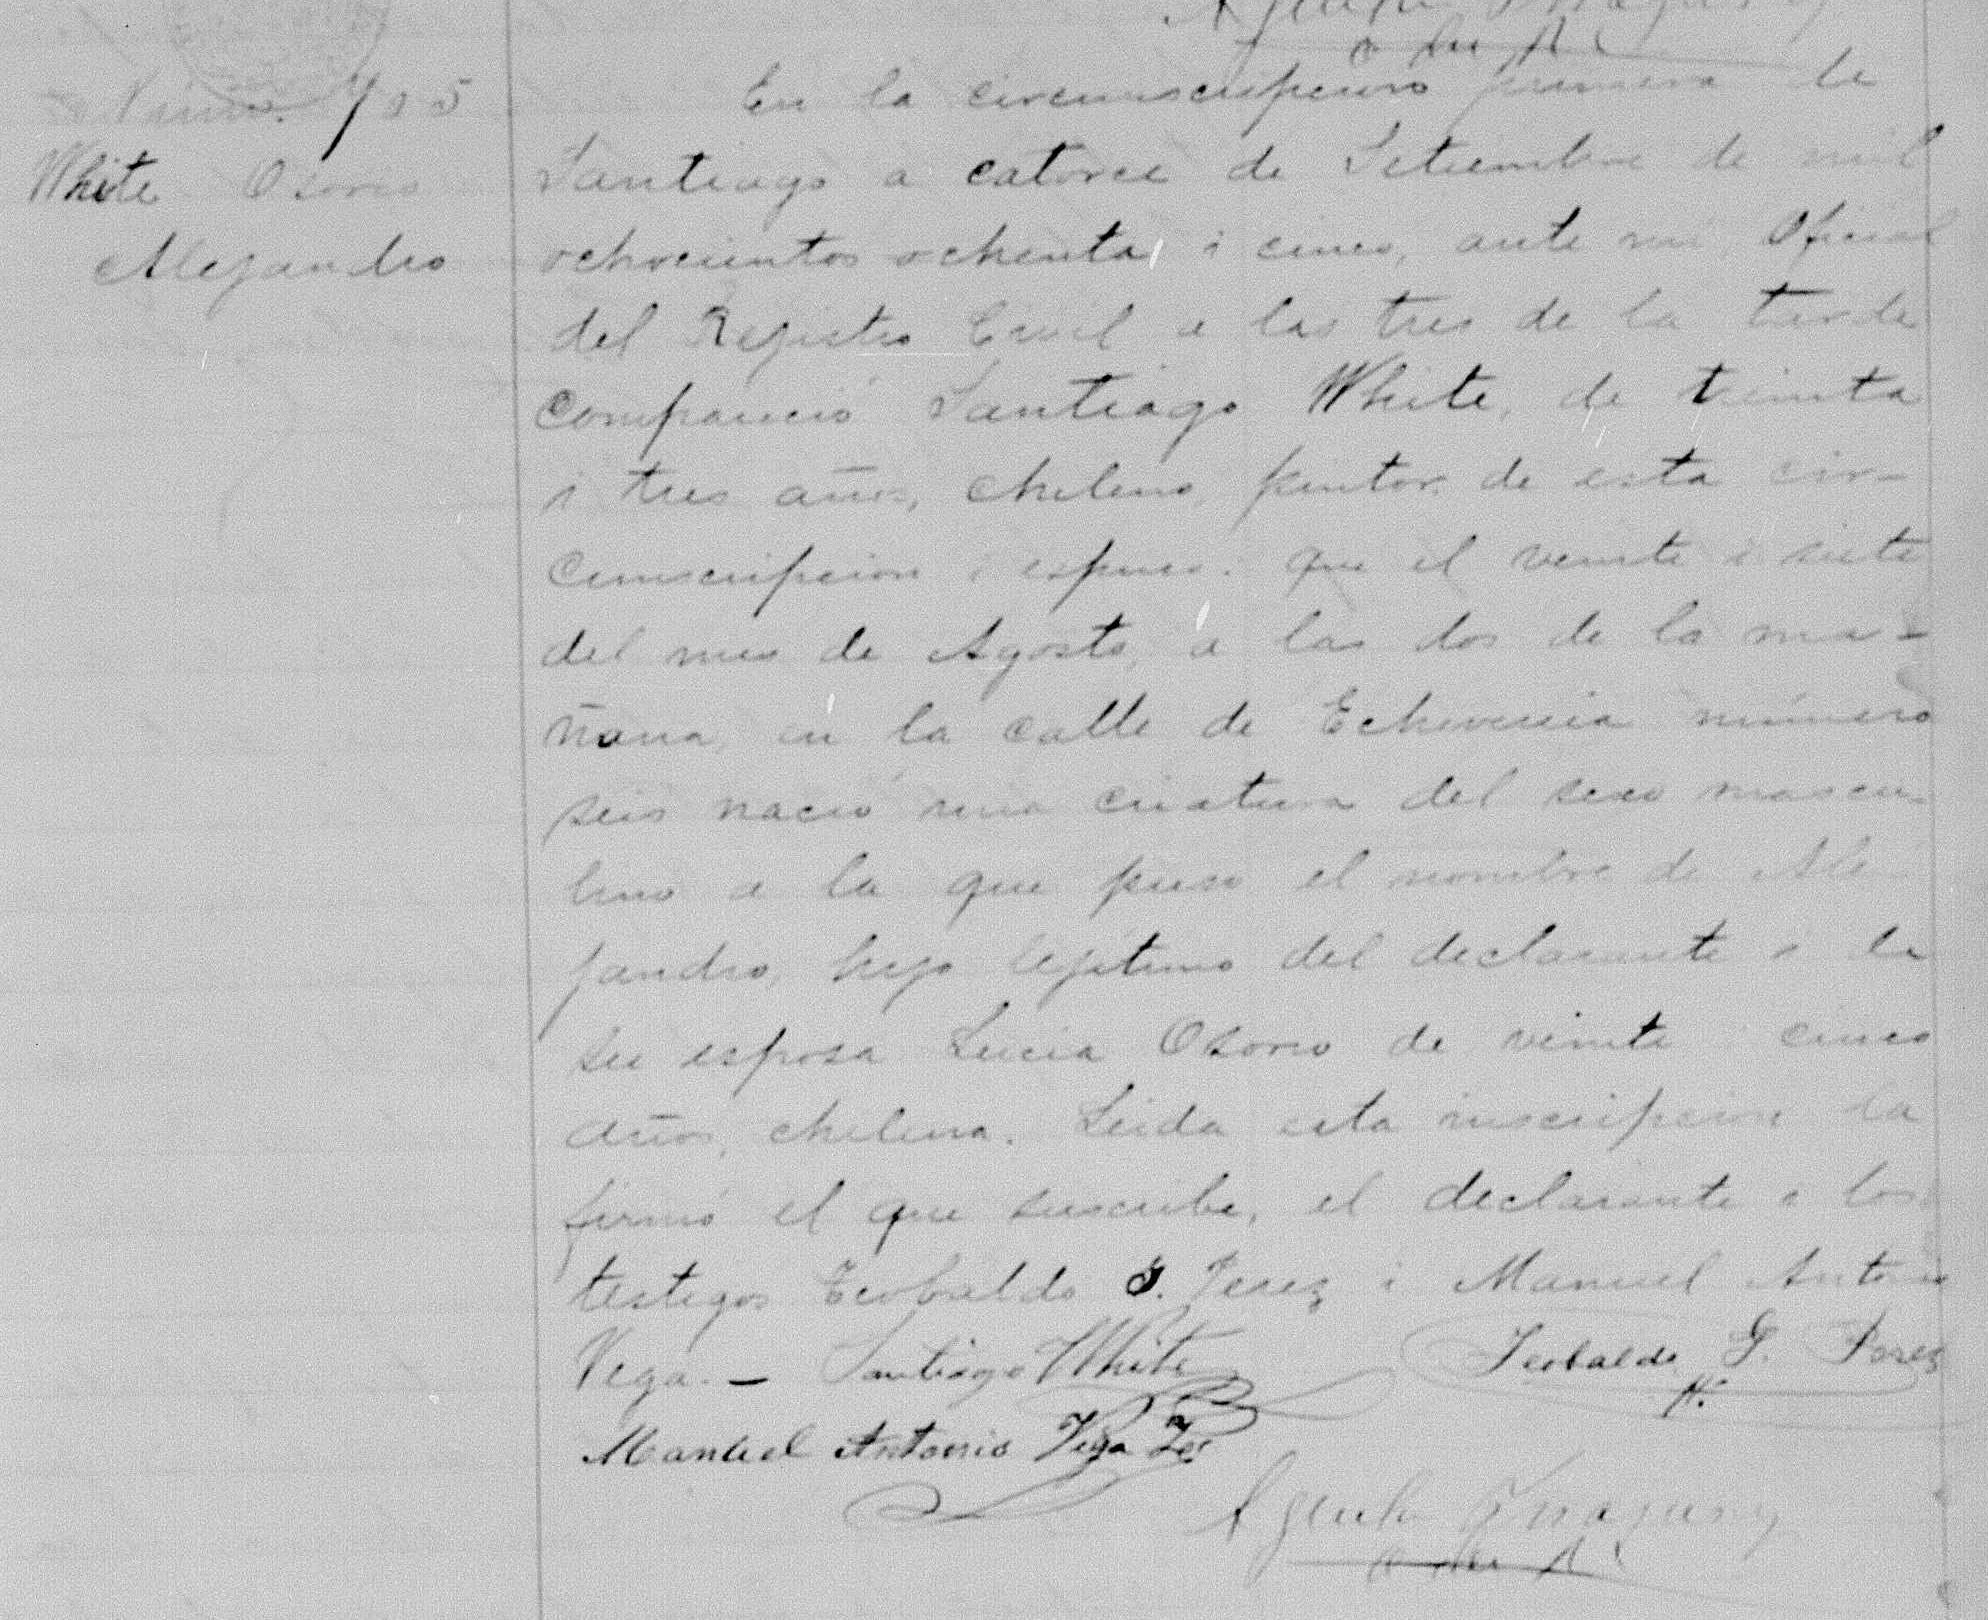 Núm. 705
White Osorio
Alejandro
En la circunscripcion primera de
Santiago a catorce de Setiembre de mil
ochocientos ochenta i cinco, ante mi Oficial
del Rejistro Civil a las tres de la tarde
compareció Santiago White, de treinta
i tres años, chileno, pintor, de esta cir-
cunscripcion i espuso: que el veinte i siete
del mes de Agosto, a las dos de la ma-
ñana, en la calle de Echeverria número
seis nació una criatura del sexo mascu-
lino a la que puso el nombre de Ale
jandro, hijo lejítimo del declarante i de
su esposa Lucia Osorio de veinte cinco
años, chilena. Leida esta inscripcion la
firmó el que suscribe, el declarante i los
testigos Teobaldo G. Perez i Manuel Antonio
Vega. — Santiago White
Teobaldo G. Perez
Manuel Antonio Vega